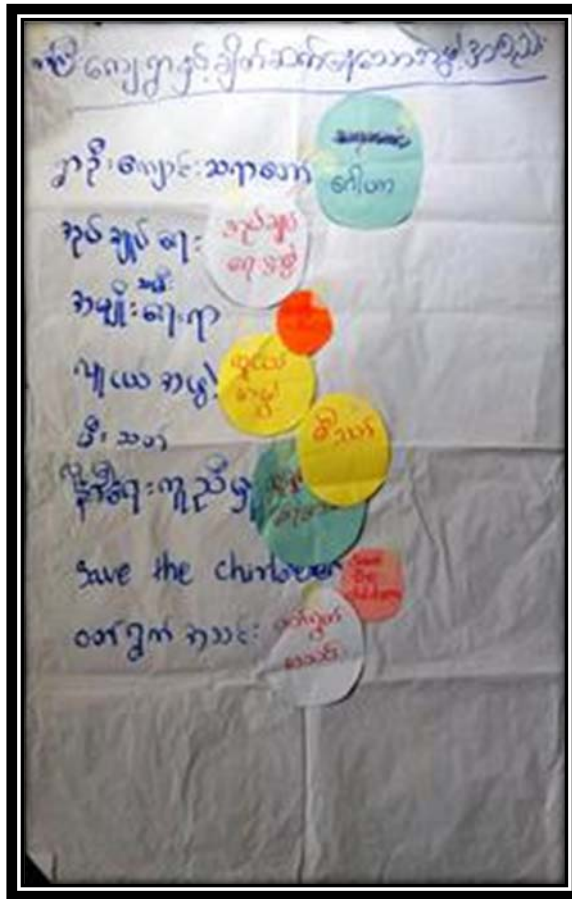 ကျေးရွာနှင့်ချိတ်ဆက်နေသောအဖွဲ့အစည်း
ရွာဦးကျောင်းဆရာတော်
ဂေါပက
အုပ်ချုပ်ရေး
အုပ်ချုပ်
ရေးအဖွဲ့
အမျိုးသမီးရေးရာ
လူငယ်အဖွဲ့
လူငယ်
အဖွဲ့
မီးသတ်
မီးသတ်
ကူညီမှု
Save the
Save
the
children
ဝတ်ရွတ်အသင်း
ဝတ်ရွတ်
အသင်း